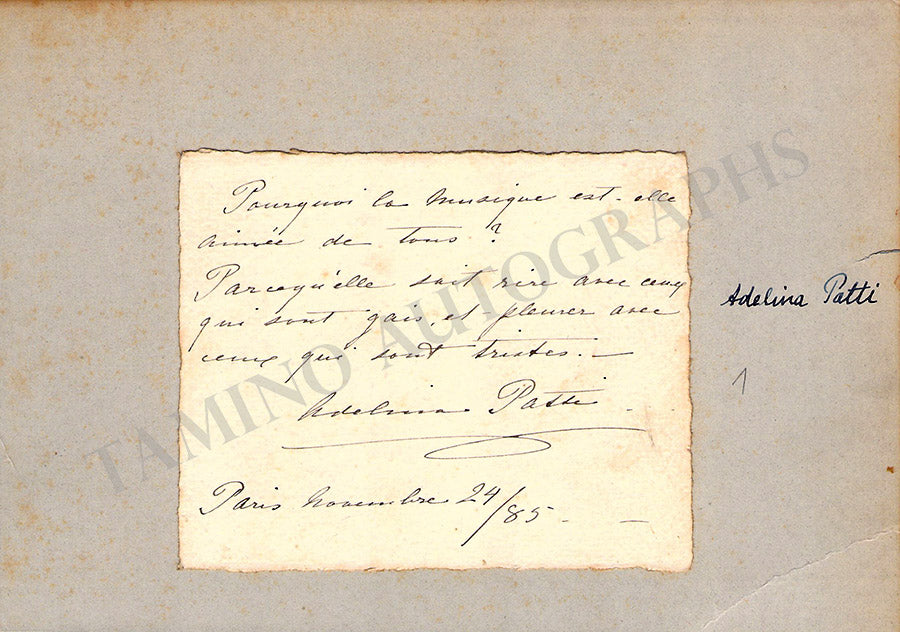 Pourquoi la musique est-elle
aimée de tous ?
Parcequ'elle sait rire avec ceux
qui sont gais et pleurer avec
ceux qui sont tristes. —
Adelina Patti
Paris Novembre 24/85. —
Adelina Patti
1
TAMINO AUTOGRAPHS